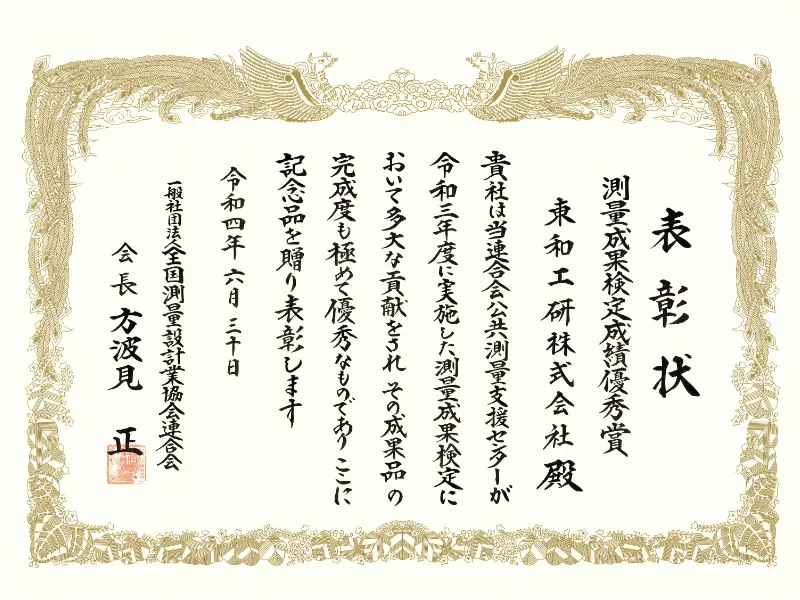 表彰状
測量成果検定成績優秀賞
東和工研株式会社 殿
貴社は当連合会公共測量支援センターが
令和三年度に実施した測量成果検定に
おいて多大な貢献をされ その成果品の
完成度も極めて優秀なものであり ここに
記念品を贈り表彰します
令和四年 六月 三十日
一般社団法人全国測量設計業協会連合会
会長 方波見 正